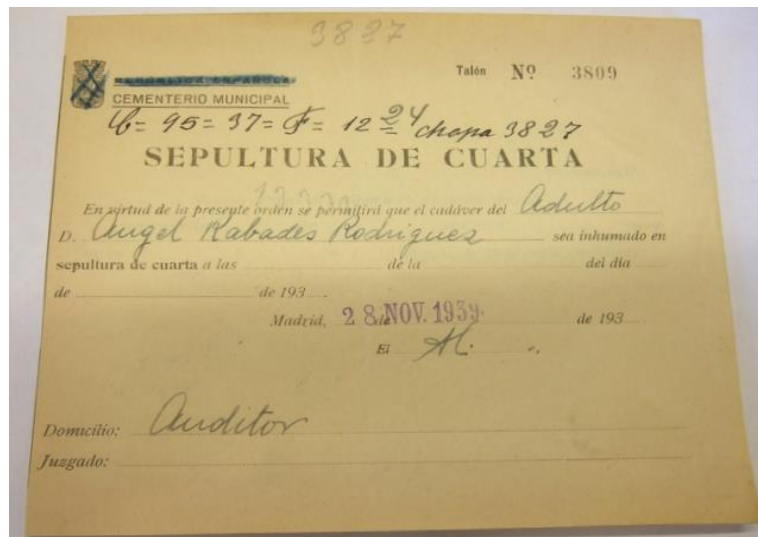 3827
Talón Nº 3809
REPUBLICA ESPAÑOLA
CEMENTERIO MUNICIPAL
C= 95= 37= F= 12 = 24 chapa 3827
SEPULTURA DE CUARTA
En virtud de la presente orden se permitirá que el cadáver del Adulto
D. Angel Rabades Rodriguez sea inhumado en
sepultura de cuarta a las de la del día
de de 193
Madrid, 28 NOV. 1939 de de 193
El
Domicilio: Auditor
Juzgado: